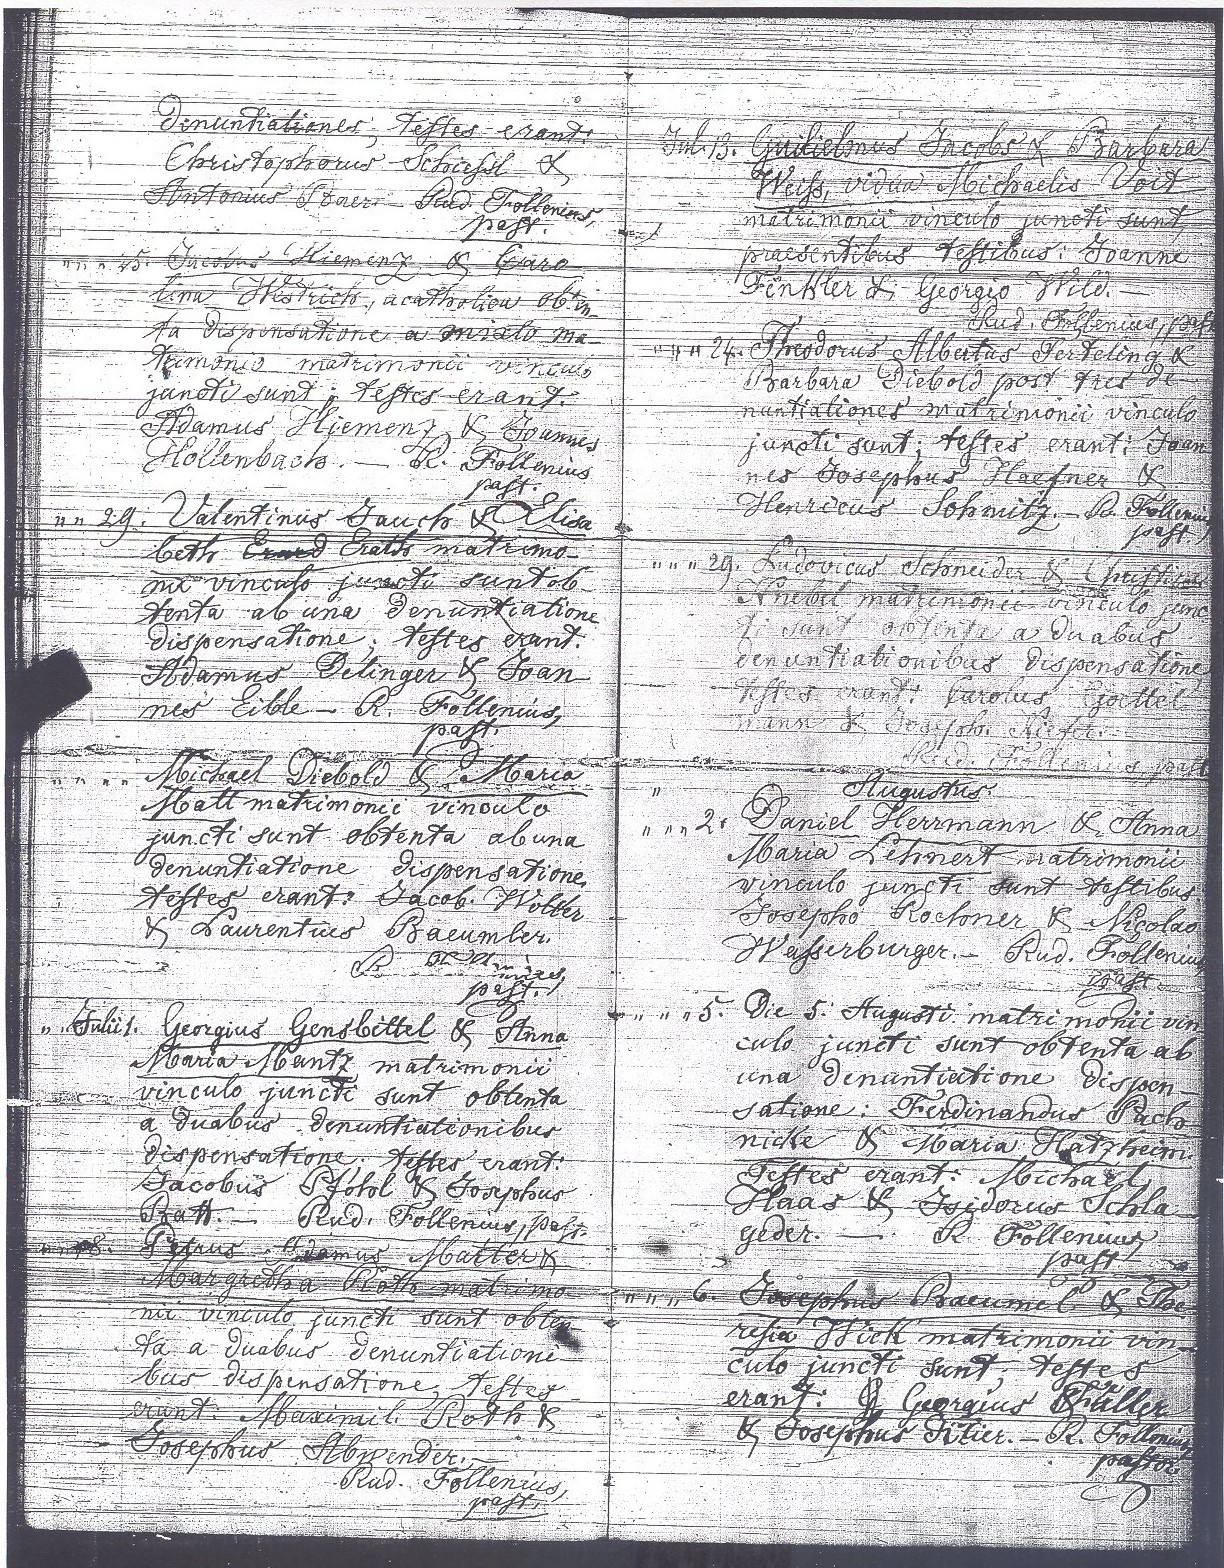 denuntiationes; testes erant:
Christophorus Schiessl &
Antonius Rud. Follenius,
past.
" " " 25. Jacobus Hiemenz & Caro
lina Westrich, acatholica obten
ta dispensatione a mixto ma-
trimonio matrimonii vinculo
juncti sunt; testes erant.
Adamus Hiemenz & Joannes
Hollenbach. — R. Follenius
past.
" " 29. Valentinus Jauch & Elisa
beth Erath matrimo-
nii vinculo juncti sunt ob
tenta ab una denuntiatione
dispensatione; testes erant.
Adamus Delinger & Joan
nes Eible — R. Follenius,
past.
" " " " Michael Diebold & Maria
Matt matrimonii vinculo
juncti sunt obtenta ab una
denuntiatione dispensatione.
testes erant: Jacob. Wolter
& Laurentius Baeumler.
R. Follenius,
past.
" " Julii 1. Georgius Gensbittel & Anna
Maria Mantz matrimonii
vinculo juncti sunt obtenta
a duabus denuntiationibus
dispensatione; testes erant:
Jacobus & Josephus
Batt. — Rud. Follenius, past.
" " 8. Petrus Adamus Matter &
Margretha Roth matrimo
nii vinculo juncti sunt obten
ta a duabus denuntiationi-
bus dispensatione, testes
erant: Maximil. Roth &
Josephus Abwender. —
Rud. Follenius,
past.
Jul. 13. Guilielmus Jacobs & Barbara
Weiss, vidua Michaelis Voit
matrimonii vinculo juncti sunt,
praesentibus testibus: Joanne
Finkler & Georgio Wild. —
Rud. Follenius, past.
" " " 24. Theodorus Albertus Terteling &
Barbara Diebold post tres de-
nuntiationes matrimonii vinculo
juncti sunt; testes erant: Joan
nes Josephus Haefner &
Henricus Schmitz. — R. Follenius
past.
" " " 29. Ludovicus Schneider & Christina
Knebel matrimonii vinculo junc
ti sunt obtenta a duabus
denuntiationibus dispensatione,
testes erant: Carolus Goettel
mann & Joseph.
Rud. Follenius past.
" Augustus
" " " 2. Daniel Herrmann & Anna
Maria Lehnert matrimonii
vinculo juncti sunt testibus
Josepho Kochner & Nicolao
Wasserburger. — Rud. Follenius
past.
" " " 5. Die 5. Augusti matrimonii vin
culo juncti sunt obtenta ab
una denuntiatione dispen-
satione: Ferdinandus Pach
nicke & Maria Hatzheim.
Testes erant: Michael
Haas & Isidorus Schla
geder. — R. Follenius,
past
" " " 6. Josephus Baeumel & The
resia Wick matrimonii vin-
culo juncti sunt, testes
erant: Georgius Füller
& Josephus Ritier. — R. Follenius,
pastor.